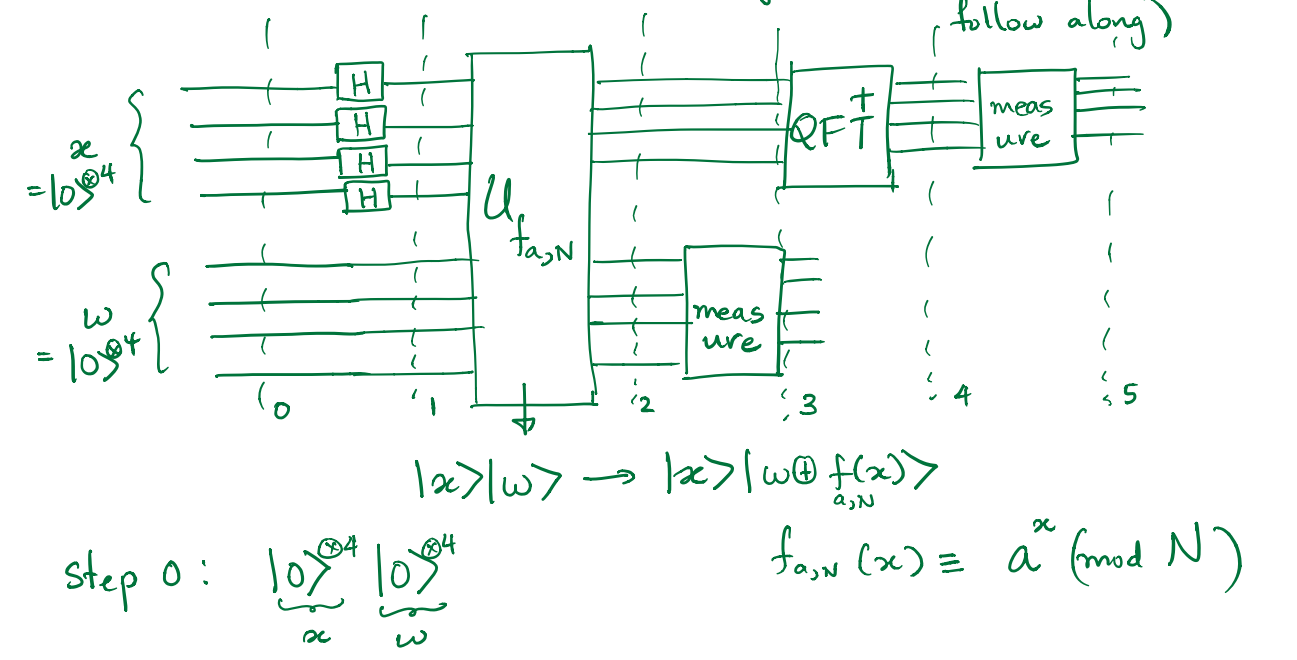 follow along)
H
H
x
H
= |0⟩^⊗4
H
U_{f_{a,N}}
QFT^†
meas
ure
w
= |0⟩^⊗4
meas
ure
0 1 2 3 4 5
|x⟩|w⟩ → |x⟩|w ⊕ f_{a,N}(x)⟩
step 0 : |0⟩^⊗4 |0⟩^⊗4
x w
f_{a,N}(x) ≡ a^x (mod N)